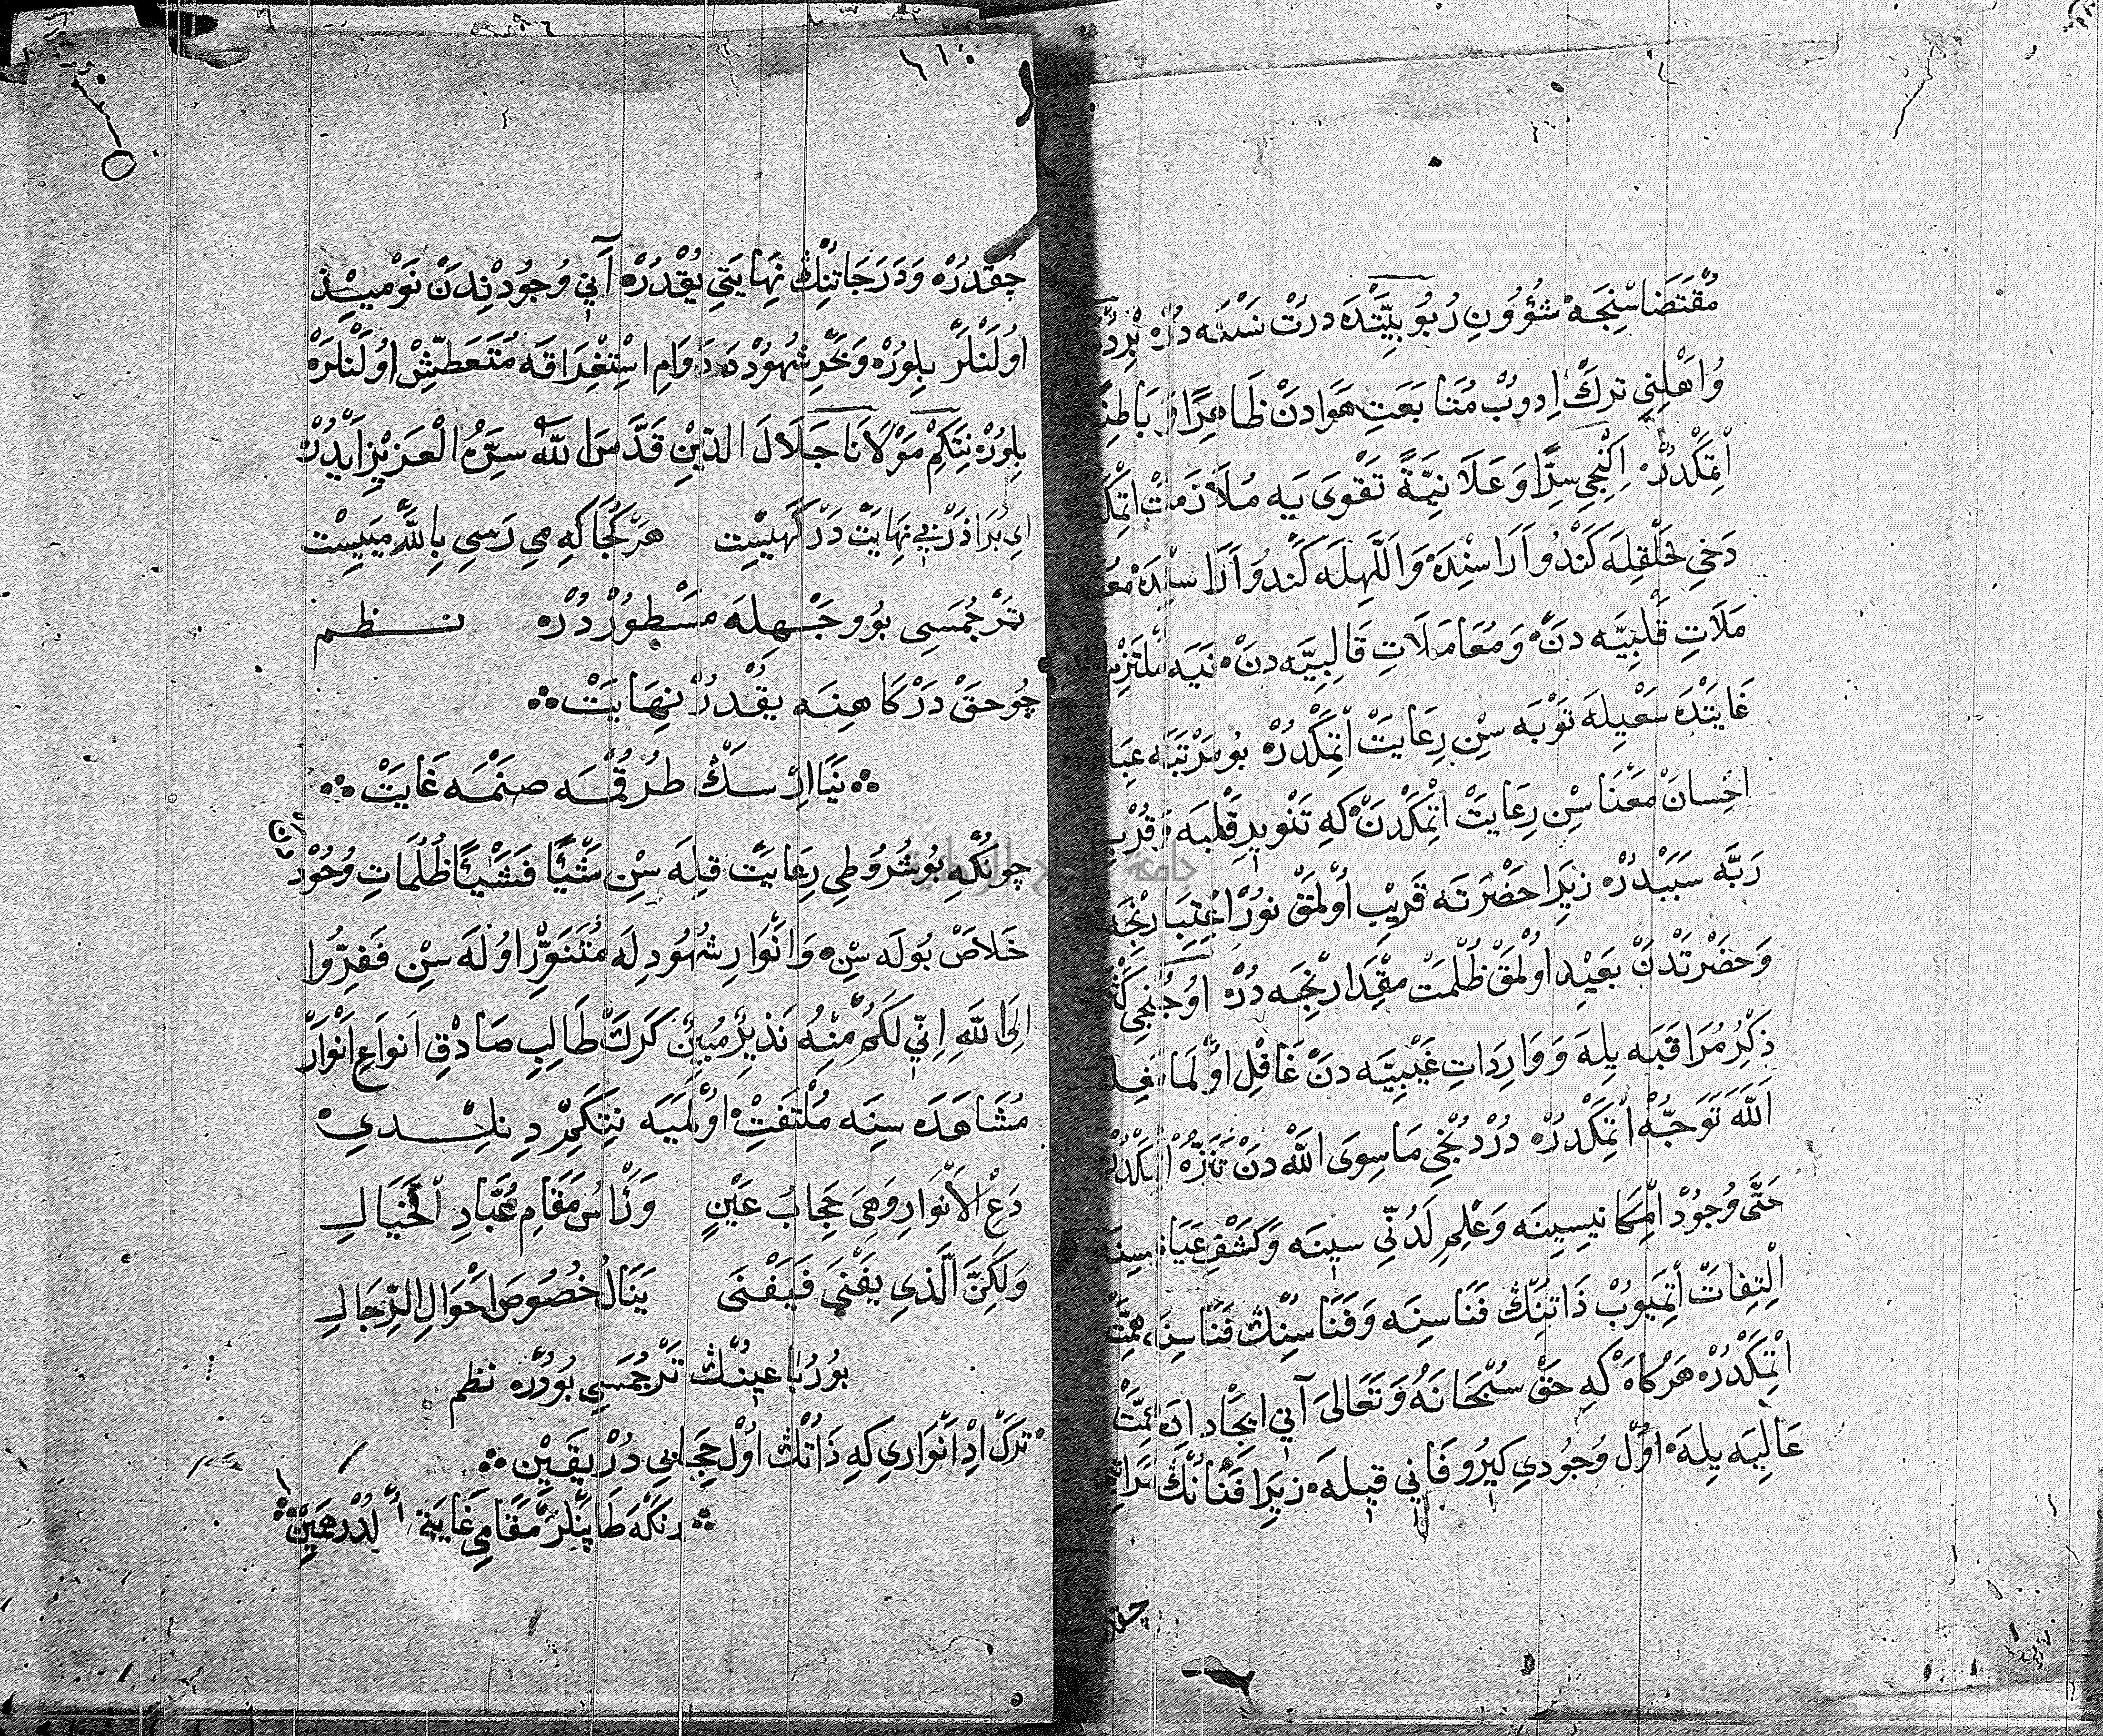 مُقْتَضَاسْنِجَه شُؤُونِ رُبُوبِيَّتْدَه دُرْتْ نَسْنَه دُرْه بِرِ
وُاَهْلِنِي تَرْكْ اِدوُبْ مُتَابَعَتِ هَوَادَنْ ظَاهِرًا وَبَاطِنًا
اِتْمَكْدُرْه اِكِنْجِي سِرًّا وَعَلَانِيَةً تَقْوَى يَه مُلَازَمَتْ اِتْمَكْ
دَخِي خَلْقِلَه كَنْدُو اَرَاسِنْدَه وَاَللّٰهِلَه كَنْدُو اَرَاسِنْدَه مُعَا
مَلَاتِ قَلْبِيَّه دَنْ وَمُعَامَلَاتِ قَالِبِيَّه دَنْ نَيَه مُلْتَزِمْ
غَايَتْدَه سَعْيِلَه تَوْبَه سِنِ رِعَايَتْ اِتْمَكْدُرْه بُو مَرْتَبَه
اِحْسَانْ مَعْنَاسِنِ رِعَايَتْ اِتْمَكْدَنْ كِه تَنْوِيرِ قَلْبَه وَقُرْبِ
رَبَّه سَبَبْدُرْه زِيرَا حَضْرَتَه قَرِيبْ اُولْمَقْ نُورْ اِعْتِبَارِنْجَه
وَحَضْرَتْدَنْ بَعِيدْ اُولْمَقْ ظُلْمَتْ مِقْدَارِنْجَه دُرْه اُوچُنْجِي كَثْرَتِ
ذِكْرُ مُرَاقَبَه يِلَه وَوَارِدَاتِ غَيْبِيَّه دَنْ غَافِلْ اُولْمَامَغِلَه
اَللّٰهَ تَوَجُّهْ اِتْمَكْدُرْه دُرْدُنْجِي مَاسِوَى اللّٰه دَنْ تَنَزُّهْ اِتْمَكْدُرْ
حَتَّى وُجُودْ اِمْكَانِيسِينَه وَعِلْمِ لَدُنِّي سِينَه وَكَشْفِ عَيَانِسِنَه
اِلْتِفَاتْ اِتْمَيُوبْ ذَاتِنِڭْ فَنَاسِنَه وَفَنَاسِنِڭْ فَنَاسِنَه هِمَّتْ
اِتْمَكْدُرْه هَرْكَاهْ كِه حَقْ سُبْحَانَهُ وَتَعَالَى آنِي اِيجَادْ اِدَه هِمَّتْ
عَالِيَه يِلَه اَوَّلْ وُجُودِي كِيرُو فَانِي قِيلَه زِيرَا فَنَانُڭْ مَرَاتِبِي
چقدر
١١٠
چُقْدُرْه وَدَرَجَاتِنِڭْ نِهَايَتِي يُقْدُرْه آنِي وُجُودِنْدَنْ نَوْمِيدْ
اوُلَنْلَرْ بِلُورْه وَبَحْرِ شُهُودْدَه دَوَامِ اِسْتِغْرَاقَه مُتَعَطِّشْ اوُلَنْلَرْ
بِلُورْه نِتَكِمْ مَوْلَانَا جَلَالَ الدّيْنِ قَدَّسَ اللّٰهُ سِرَّهُ الْعَزِيْزَ اَيْدُرْ
اَيْ بَرَاذَرْ بِي نِهَايَتْ دَرْكَهِيسْت هَرْ كُجَا كِه مِي رَسِي بِاللّٰه مَيِيسْت
تَرْجُمَسِي بُو وَجْهِلَه مَسْطُورْدُرْه نظم
چُو حَقْ دَرْكَاهِنَه يُقْدُرْ نِهَايَتْ
نَيَا اِرْسَكْ طُرُقْمَه صَنْمَه غَايَتْ
چُونْكَه بُو شُرُوطِي رِعَايَتْ قِلَه سِنْ شَيْئًا فَشَيْئًا ظُلُمَاتِ وُجُودْ
خَلَاصْ بُولَه سِنْ وَاَنْوَارِ شُهُودِلَه مُتَنَوِّرْ اوُلَه سِنْ فَفِرُّوا
اِلَى اللّٰهِ اِنِّي لَكُمْ مِنْهُ نَذِيرٌ مُبِينٌ كَرَكْ طَالِبِ صَادِقْ اَنْوَاعِ اَنْوَارْ
مُشَاهَدَه سِنَه مُلْتَفِتْ اوُلْمَيَه نِتَكِمْ دِينِلْدِي
دَعِ الْاَنْوَارَ وَهِيَ حِجَابُ عَيْنٍ وَرَاسُ مَقَامِ عُبَّادِ الْخَيَالِ
وَلَكِنَّ الَّذِي يَفْنَى فَيَفْنَى يَنَالُ خُصُوصَ اَحْوَالِ الرِّجَالِ
بُو رُبَاعِينُڭْ تَرْجُمَسِي بُودُرْه نظم
تَرْكْ اِدْ اَنْوَارِي كِه ذَاتُڭْ اوُلْ حِجَابِي دُرْ يَقِينْ
رَنْكَه طَاپَنْلَرْ مَقَامِي غَايَتِي اوُلْدُرْ هَمِينْ